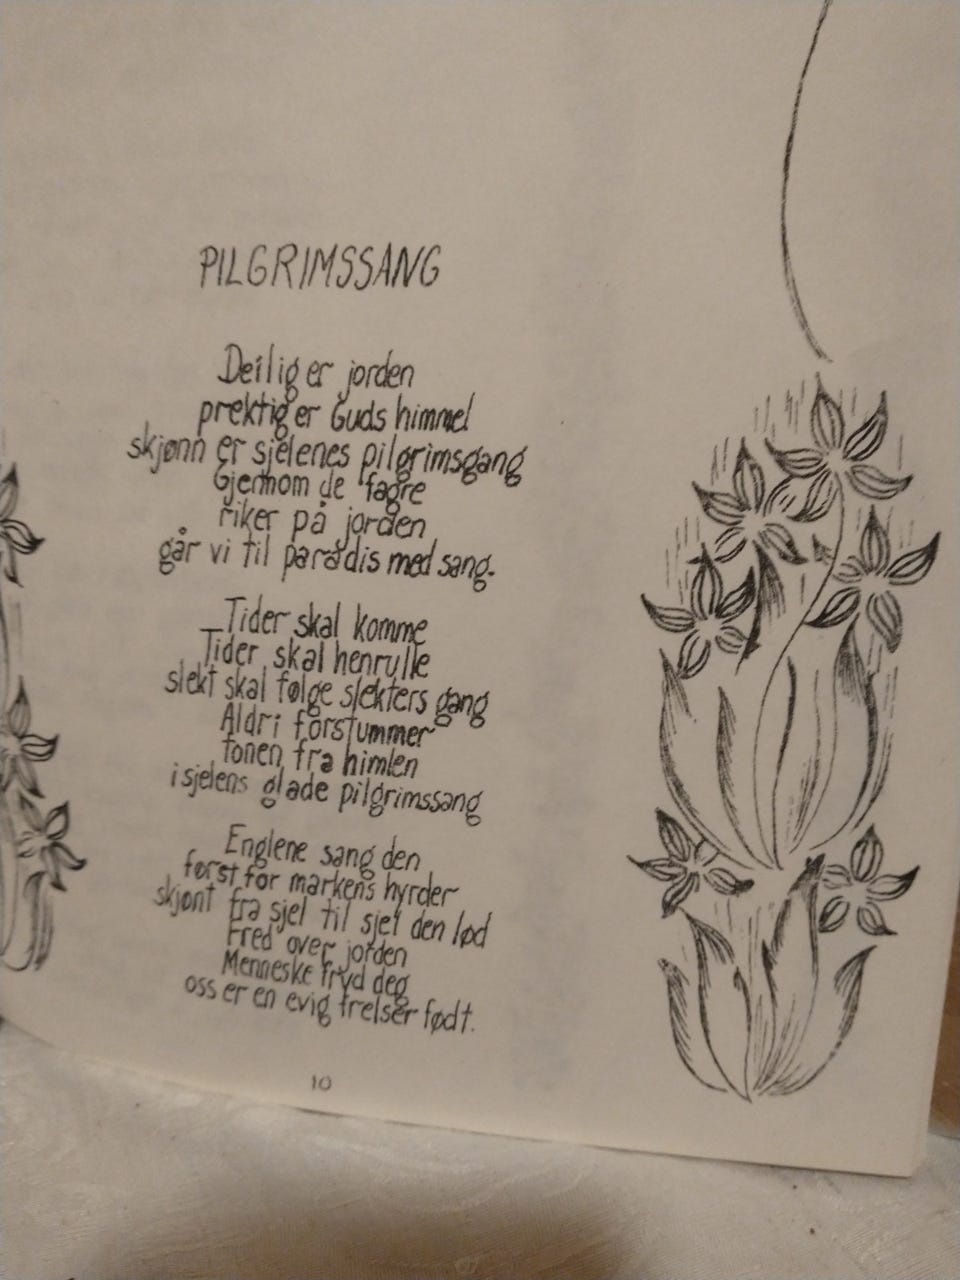 PILGRIMSSANG
Deilig er jorden
prektig er Guds himmel
skjønn er sjelenes pilgrimsgang
Gjennom de fagre
riker på jorden
går vi til paradis med sang.
Tider skal komme
Tider skal henrulle
slekt skal følge slekters gang
Aldri forstummer
tonen fra himlen
i sjelens glade pilgrimssang
Englene sang den
først for markens hyrder
skjønt fra sjel til sjel den lød
Fred over jorden
Menneske fryd deg
oss er en evig frelser født.
10